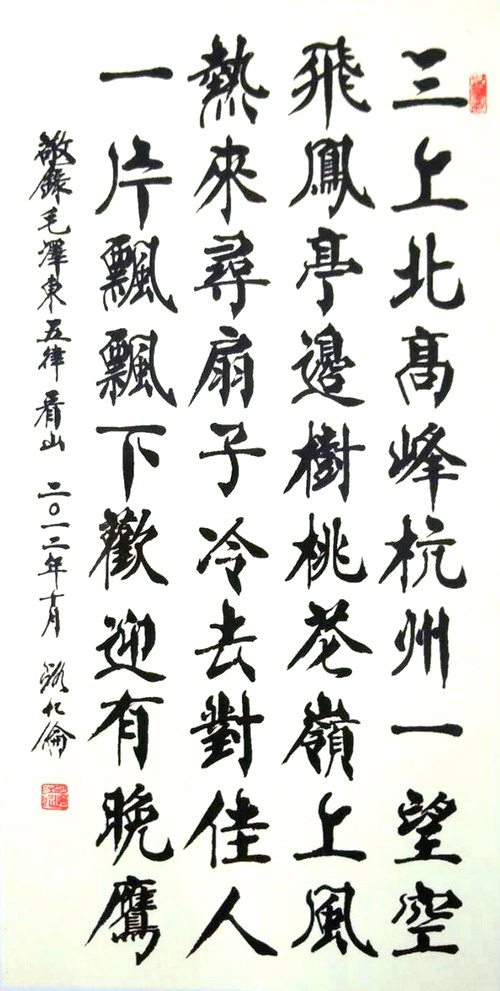 三上北髙峰杭州一望空
飛鳳亭邊樹桃花嶺上風
熱來尋扇子冷去對佳人
一片飄飄下歡迎有晚鷹
敬錄毛澤東五律看山 二〇一二年十月